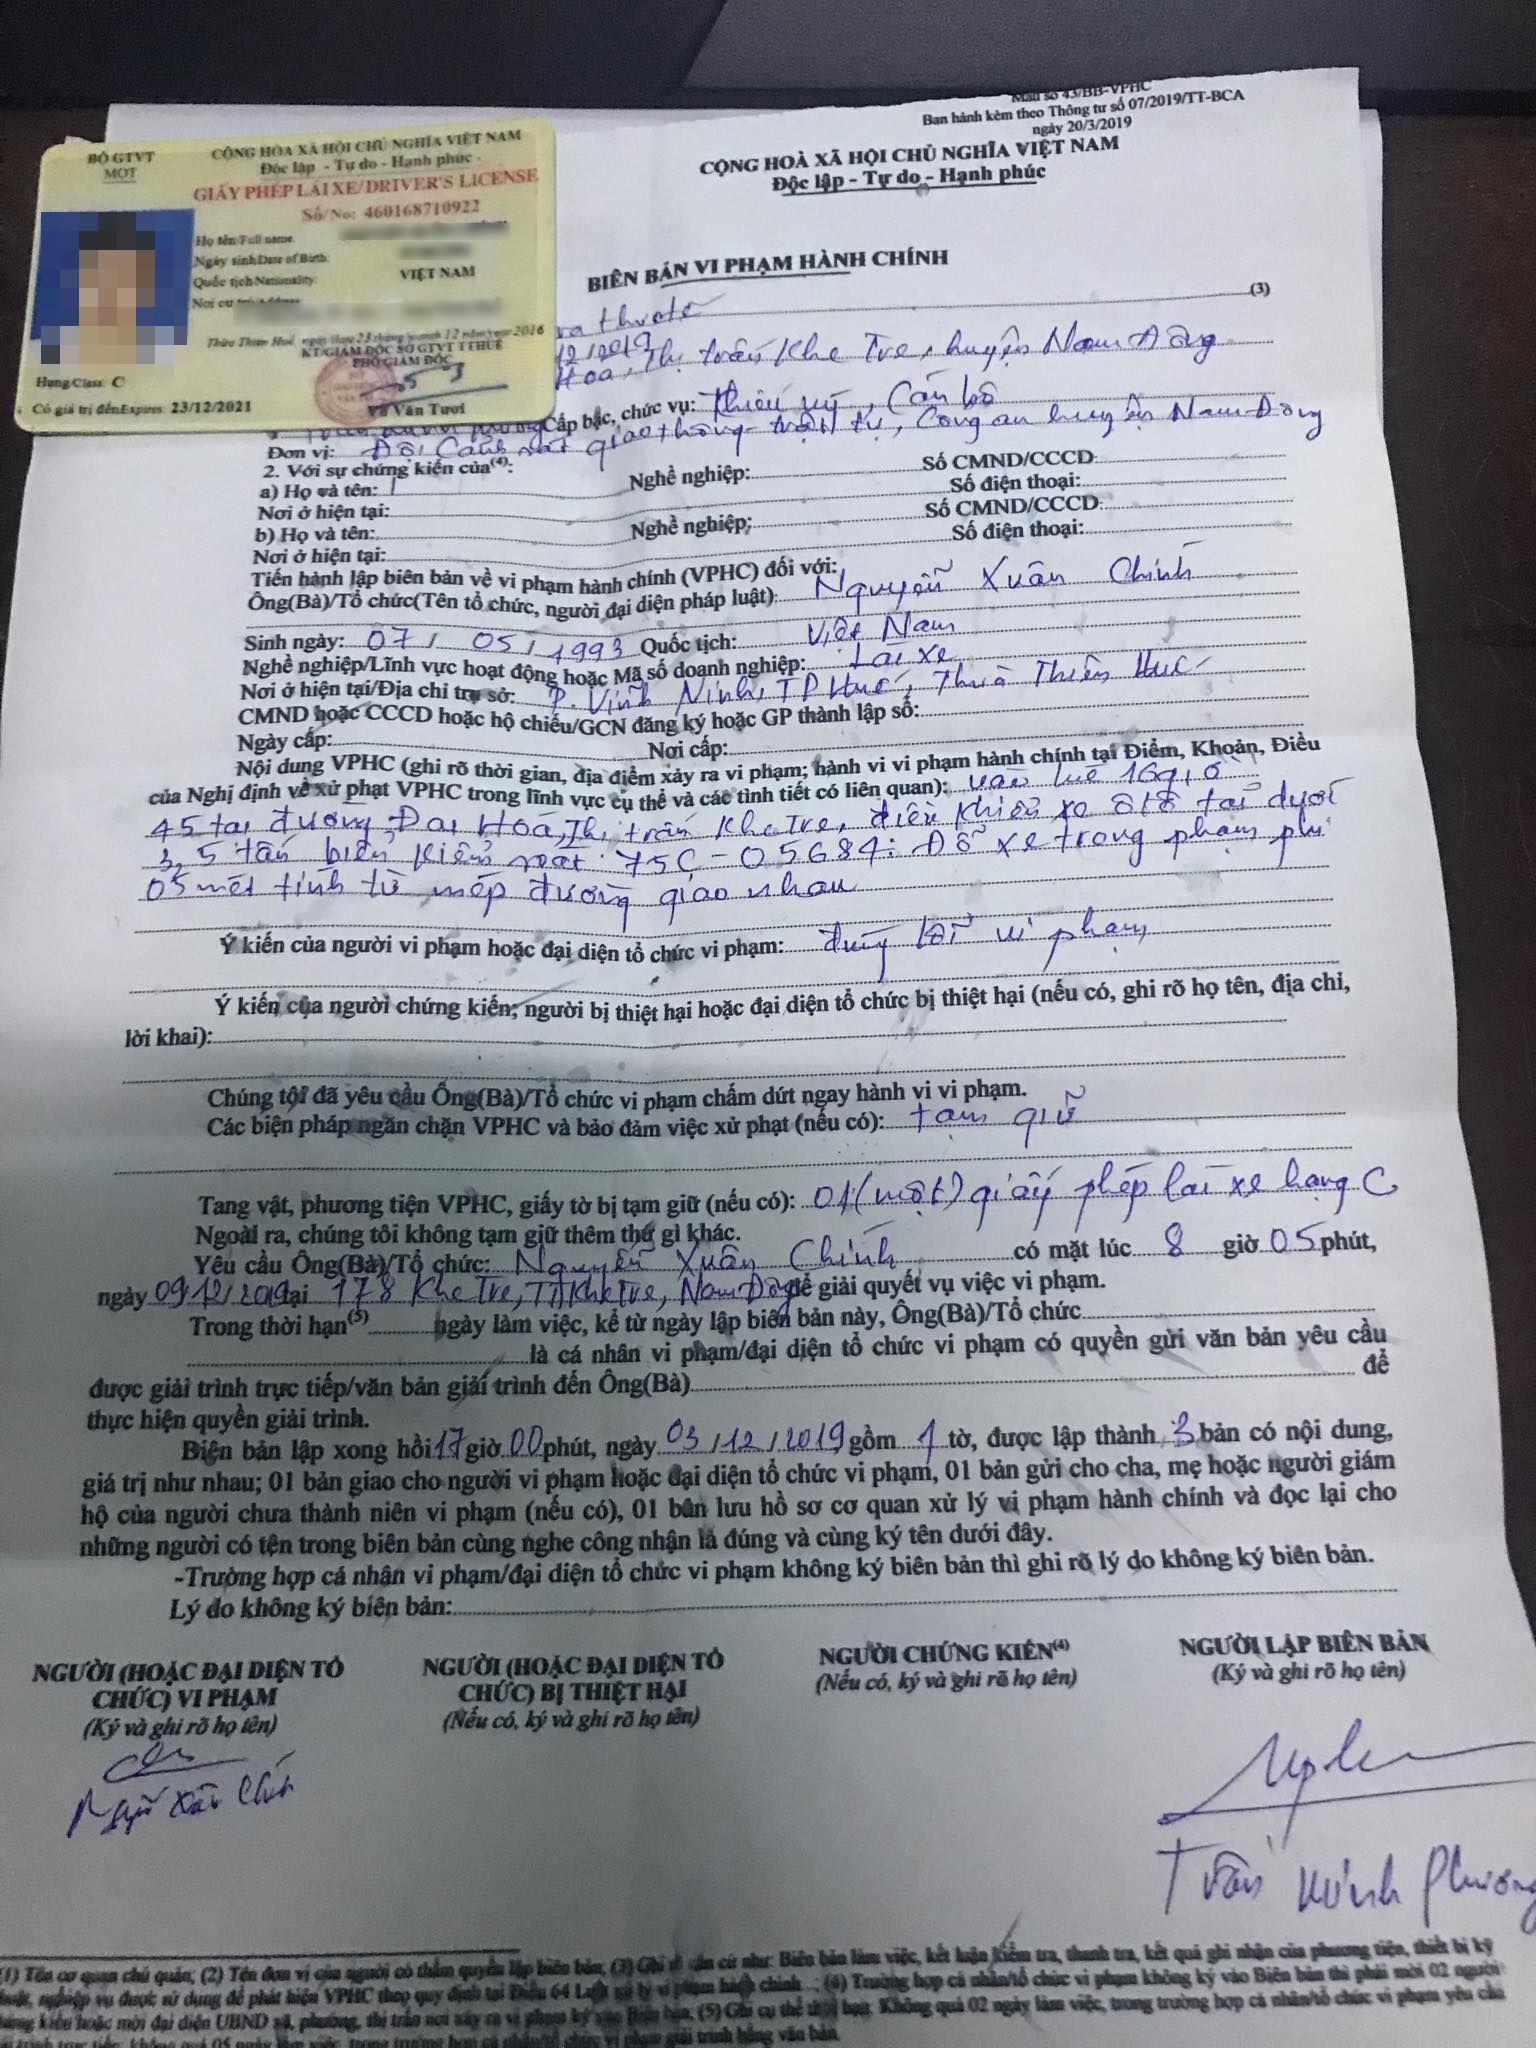 Mẫu số 43/BB-VPHC
Ban hành kèm theo Thông tư số 07/2019/TT-BCA
ngày 20/3/2019
CỘNG HOÀ XÃ HỘI CHỦ NGHĨA VIỆT NAM
Độc lập - Tự do - Hạnh phúc
BỘ GTVT
MOT
CỘNG HÒA XÃ HỘI CHỦ NGHĨA VIỆT NAM
Độc lập - Tự do - Hạnh phúc
GIẤY PHÉP LÁI XE/DRIVER'S LICENSE
Số/No: 460168710922
Họ tên/Full name
Ngày sinh/Date of Birth:
Quốc tịch/Nationality: VIỆT NAM
Nơi cư trú/Address
Thừa Thiên Huế, ngày/date 23 tháng/month 12 năm/year 2016
KT/GIÁM ĐỐC SỞ GTVT T T HUẾ
PHÓ GIÁM ĐỐC
Hạng/Class: C
Có giá trị đến/Expires: 23/12/2021
Văn Tươi
BIÊN BẢN VI PHẠM HÀNH CHÍNH
(3)
12/2019
Hoá, Thị trấn Khe Tre, huyện Nam Đông
Cấp bậc, chức vụ: Thiếu uý, Cán bộ
Đơn vị: Đội Cảnh sát giao thông - trật tự, Công an huyện Nam Đông
2. Với sự chứng kiến của(4):
a) Họ và tên: Nghề nghiệp: Số CMND/CCCD:
Nơi ở hiện tại: Số điện thoại:
b) Họ và tên: Nghề nghiệp: Số CMND/CCCD:
Nơi ở hiện tại: Số điện thoại:
Tiến hành lập biên bản về vi phạm hành chính (VPHC) đối với:
Ông(Bà)/Tổ chức(Tên tổ chức, người đại diện pháp luật): Nguyễn Xuân Chính
Sinh ngày: 07 / 05 / 1993 Quốc tịch: Việt Nam
Nghề nghiệp/Lĩnh vực hoạt động hoặc Mã số doanh nghiệp: Lái xe
Nơi ở hiện tại/Địa chỉ trụ sở: P. Vĩnh Ninh, TP Huế, Thừa Thiên Huế
CMND hoặc CCCD hoặc hộ chiếu/GCN đăng ký hoặc GP thành lập số:
Ngày cấp: Nơi cấp:
Nội dung VPHC (ghi rõ thời gian, địa điểm xảy ra vi phạm; hành vi vi phạm hành chính tại Điểm, Khoản, Điều
của Nghị định về xử phạt VPHC trong lĩnh vực cụ thể và các tình tiết có liên quan): vào lúc 16giờ
45 tại đường Đại Hoá, Thị trấn Khe Tre, điều khiển xe ôtô tải dưới
3,5 tấn biển kiểm soát 75C - 05684: Đỗ xe trong phạm
05 mét tính từ mép đường giao nhau
Ý kiến của người vi phạm hoặc đại diện tổ chức vi phạm: đúng lỗi vi phạm
Ý kiến của người chứng kiến; người bị thiệt hại hoặc đại diện tổ chức bị thiệt hại (nếu có, ghi rõ họ tên, địa chỉ,
lời khai):
Chúng tôi đã yêu cầu Ông(Bà)/Tổ chức vi phạm chấm dứt ngay hành vi vi phạm.
Các biện pháp ngăn chặn VPHC và bảo đảm việc xử phạt (nếu có): tạm giữ
Tang vật, phương tiện VPHC, giấy tờ bị tạm giữ (nếu có): 01 (một) giấy phép lái xe hạng C
Ngoài ra, chúng tôi không tạm giữ thêm thứ gì khác.
Yêu cầu Ông(Bà)/Tổ chức: Nguyễn Xuân Chính có mặt lúc 8 giờ 05 phút,
ngày 09/12/2019 tại 178 Khe Tre, TT Khe Tre, Nam Đông để giải quyết vụ việc vi phạm.
Trong thời hạn(5) ngày làm việc, kể từ ngày lập biên bản này, Ông(Bà)/Tổ chức
là cá nhân vi phạm/đại diện tổ chức vi phạm có quyền gửi văn bản yêu cầu
được giải trình trực tiếp/văn bản giải trình đến Ông(Bà) để
thực hiện quyền giải trình.
Biên bản lập xong hồi 17 giờ 00 phút, ngày 03 / 12 / 2019 gồm 1 tờ, được lập thành 3 bản có nội dung,
giá trị như nhau; 01 bản giao cho người vi phạm hoặc đại diện tổ chức vi phạm, 01 bản gửi cho cha, mẹ hoặc người giám
hộ của người chưa thành niên vi phạm (nếu có), 01 bản lưu hồ sơ cơ quan xử lý vi phạm hành chính và đọc lại cho
những người có tên trong biên bản cùng nghe công nhận là đúng và cùng ký tên dưới đây.
-Trường hợp cá nhân vi phạm/đại diện tổ chức vi phạm không ký biên bản thì ghi rõ lý do không ký biên bản.
Lý do không ký biên bản:
NGƯỜI (HOẶC ĐẠI DIỆN TỔ
CHỨC) VI PHẠM
(Ký và ghi rõ họ tên)
NGƯỜI (HOẶC ĐẠI DIỆN TỔ
CHỨC) BỊ THIỆT HẠI
(Nếu có, ký và ghi rõ họ tên)
NGƯỜI CHỨNG KIẾN(4)
(Nếu có, ký và ghi rõ họ tên)
NGƯỜI LẬP BIÊN BẢN
(Ký và ghi rõ họ tên)
Nguyễn Xuân Chính
Trần Minh Phương
(1) Tên cơ quan chủ quản; (2) Tên đơn vị của người có thẩm quyền lập biên bản; (3) Ghi rõ căn cứ như: Biên bản làm việc, kết luận kiểm tra, thanh tra, kết quả ghi nhận của phương tiện, thiết bị kỹ
thuật, nghiệp vụ được sử dụng để phát hiện VPHC theo quy định tại Điều 64 Luật xử lý vi phạm hành chính...; (4) Trường hợp cá nhân/tổ chức vi phạm không ký vào Biên bản thì phải mời 02 người
chứng kiến hoặc mời đại diện UBND xã, phường, thị trấn nơi xảy ra vi phạm ký vào Biên bản; (5) Ghi cụ thể thời hạn: Không quá 02 ngày làm việc, trong trường hợp cá nhân/tổ chức vi phạm yêu cầu
giải trình trực tiếp; không quá 05 ngày làm việc, trong trường hợp cá nhân/tổ chức vi phạm giải trình bằng văn bản.